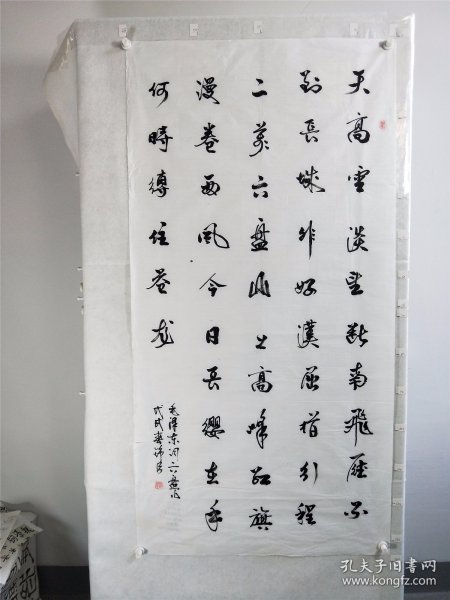 天高雲淡望断南飛雁不
到長城非好漢屈指行程
二萬六盘山上高峰红旗
漫卷西风今日長缨在手
何時縛住苍龙
毛泽东词六盘山
孔夫子旧书网
www.kongfz.com